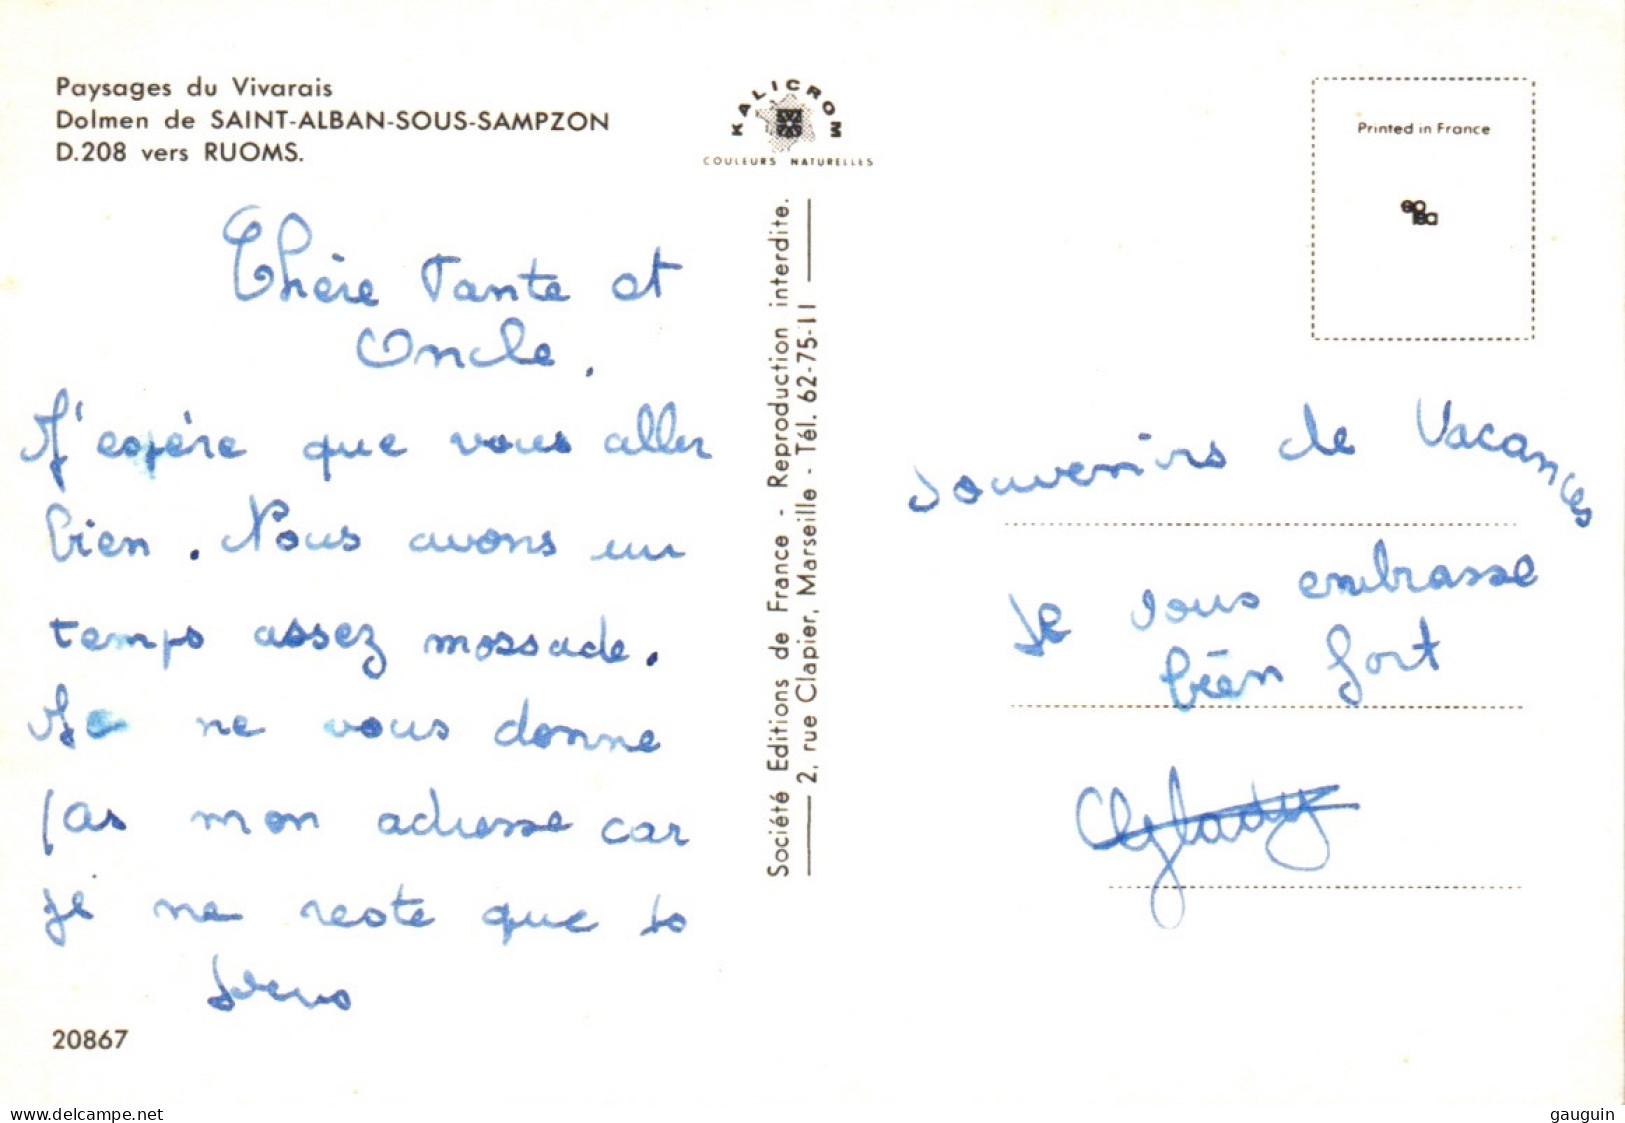 Paysages du Vivarais
Dolmen de SAINT-ALBAN-SOUS-SAMPZON
D.208 vers RUOMS.
KALICROM
COULEURS NATURELLES
Printed in France
Chère Tante et
Oncle.
J'espère que vous aller
bien. Nous avons un
temps assez mossade.
Je ne vous donne
pas mon adresse car
je ne reste que
20867
Société Editions de France - Reproduction interdite.
2, rue Clapier, Marseille - Tél. 62-75-11
Souvenirs de Vacances
Je vous embrasse
bien fort
Gladys
delcampe.net
gauguin